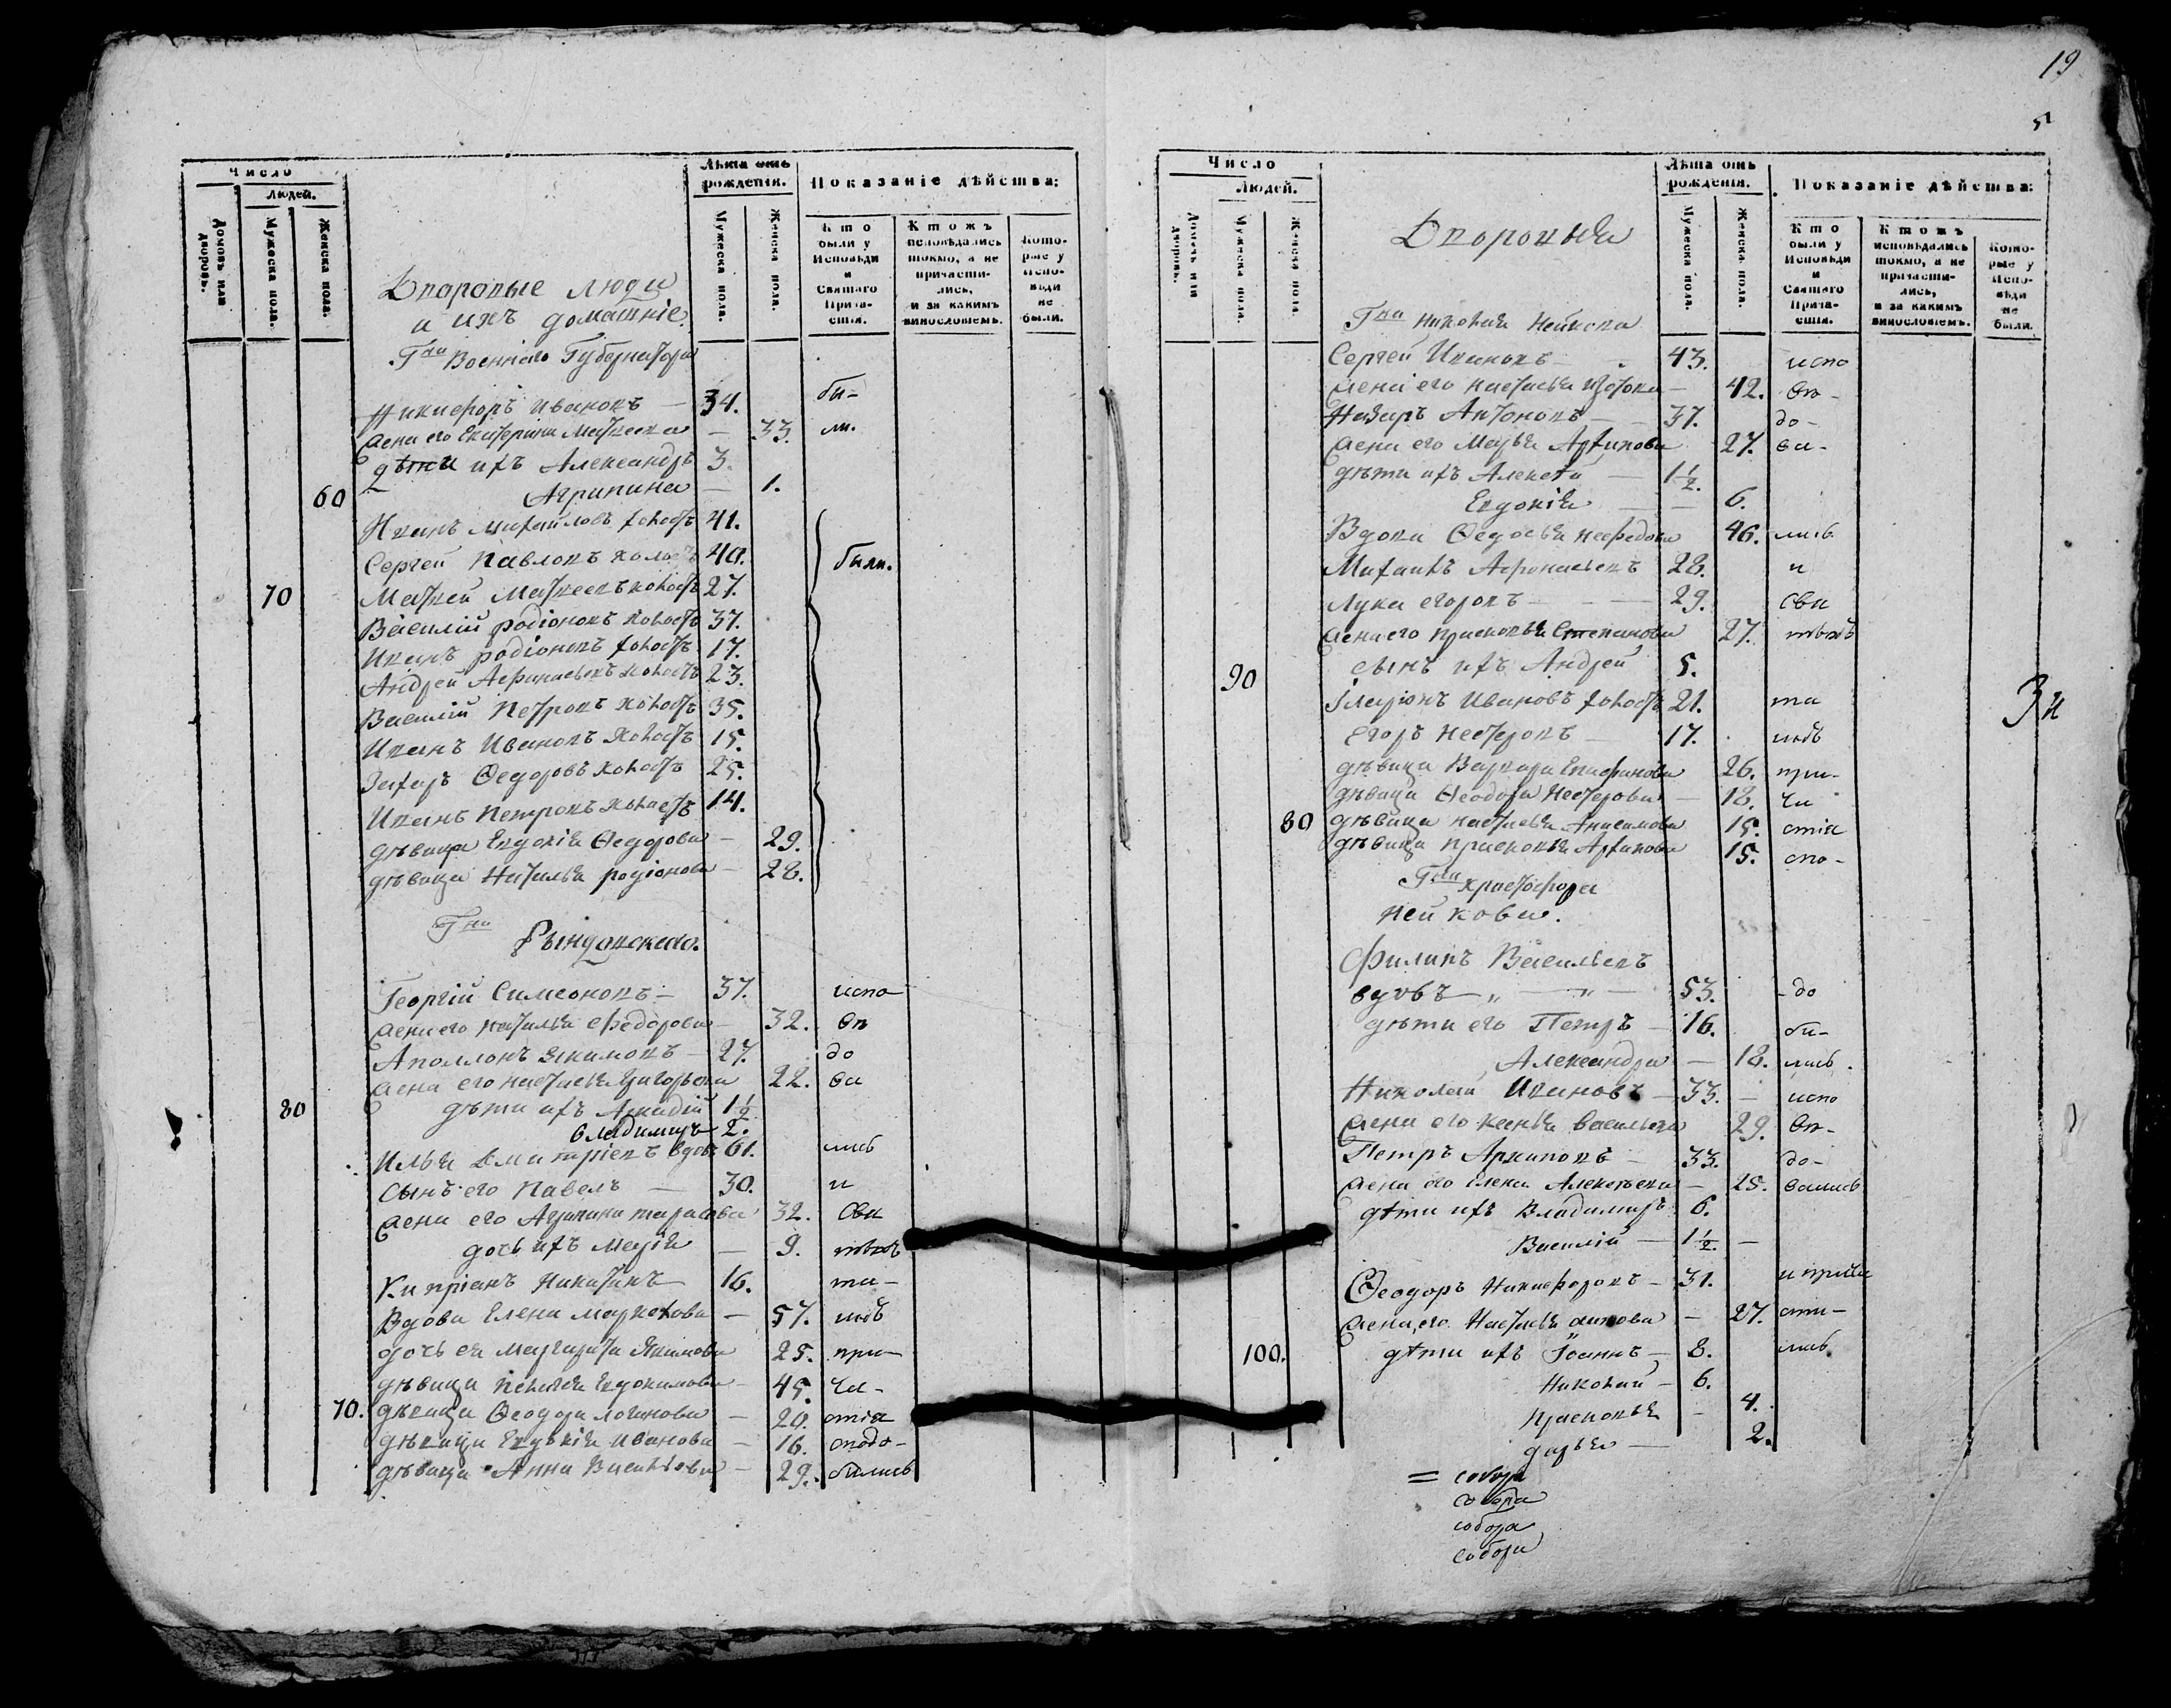 Число
Людей.
Домовъ или дворовъ.
Мужеска пола.
Женска пола.
Лѣта отъ рожденія.
Мужеска пола.
Женска пола.
Показаніе дѣйства:
Кто были у Исповѣди и Святаго Прича-стія.
Ктожъ исповѣдались токмо, а не причасти-лись, и за какимъ винословіемъ.
Кото-рые у Испо-вѣди не были.
Дворовые люди
и ихъ домашніе.
Гна Военнаго Губернатора
Никифоръ Ивановъ — 34. бы-
жена его Екатерина Матвеева — 33. ли.
дѣти ихъ Александръ 3.
60 Агрипина — 1.
Иванъ Михайловъ холостъ 41.
Сергей Павловъ холостъ 40. были.
70 Матвей Матвеевъ холостъ 27.
Василій родіоновъ холостъ 37.
родіоновъ холостъ 17.
Андрей Афанасьевъ холостъ 23.
Василій Петровъ холостъ 35.
Иванъ Ивановъ холостъ 15.
Захаръ Ѳедоровъ холостъ 25.
Иванъ Петровъ холостъ 14.
дѣвица Евдокія Ѳедорова — 29.
дѣвица Наталья родіонова — 28.
Гна
Рындовскаго.
Георгій Симеоновъ — 37. испо
жена его Наталья Федорова — 32. вѣ
Аполлонъ Якимовъ — 27. до
жена его Настасья Григорьева 22. ва
80 дѣти ихъ Аркадій 1½
Владимиръ 2.
Илья Дмитріевъ вдовъ 61. лись
Сынъ его Павелъ — 30. и
жена его Агрипина тарасова 32. Свя
дочь ихъ Марія — 9. тыхъ
Кипріанъ Никитинъ 16. та-
Вдова Елена Маркелова — 57. инъ
дочь ея Маргарита Якимова 25. при-
дѣвица Пелагея Евдокимова — 45. ча-
70. дѣвица Ѳеодора логинова — 20. стія
дѣвица Евдокія Иванова — 16. сподо-
дѣвица Анна Васильева — 29. бились
19
5
Число
Людей.
Домовъ или дворовъ.
Мужеска пола.
Женска пола.
Лѣта отъ рожденія.
Мужеска пола.
Женска пола.
Показаніе дѣйства:
Кто были у Исповѣди и Святаго Прича-стія.
Ктожъ исповѣдались токмо, а не причасти-лись, и за какимъ винословіемъ.
Кото-рые у Испо-вѣди не были.
Дворовыя
Гна Николая Нейкова
Сергей Ивановъ 43. испо
жена его Настасья Изотова — 42. вѣ-
Назаръ Антоновъ — 37. до-
жена его Марья Архипова 27. ва-
дѣти ихъ Алексѣй — 1½.
Евдокія — 6.
Вдова Ѳедосья Нефедова 46. лись
Михаилъ Афонасьевъ 28. и
Лука егоровъ — 29. Свя
жена его Прасковья Степанова 27. тыхъ
90 сынъ ихъ Андрей 5.
Іларіонъ Ивановъ холостъ 21. та
Егоръ Нестеровъ — 17. инъ
дѣвица Варвара Епифанова 26. при-
дѣвица Ѳеодора Нестерова — 18. ча
80 дѣвица Настасья Анисимова 15. стія
дѣвица Прасковья Архипова 15. спо-
Гна Христофора
Нейкова.
Филипъ Васильевъ
вдовъ — „ — „ — 53. - до
дѣти его Петръ — 16. би-
Александра — 18. лись.
Николай Ивановъ — 33. — испо
жена его Ксенья Васильева 29. вѣ-
Петръ Архиповъ — 33. до-
жена его Елена Алексѣева — 25. вались
дѣти ихъ Владимиръ 6.
Василій — 1½. —
Ѳеодоръ Никифоровъ — 31. и прича
жена его Настасья — 27. сти-
100. дѣти ихъ Іоаннъ — 8. лись
Николай — 6.
Прасковья — 4.
дарья — 2.
= собора
собора
собора
собора